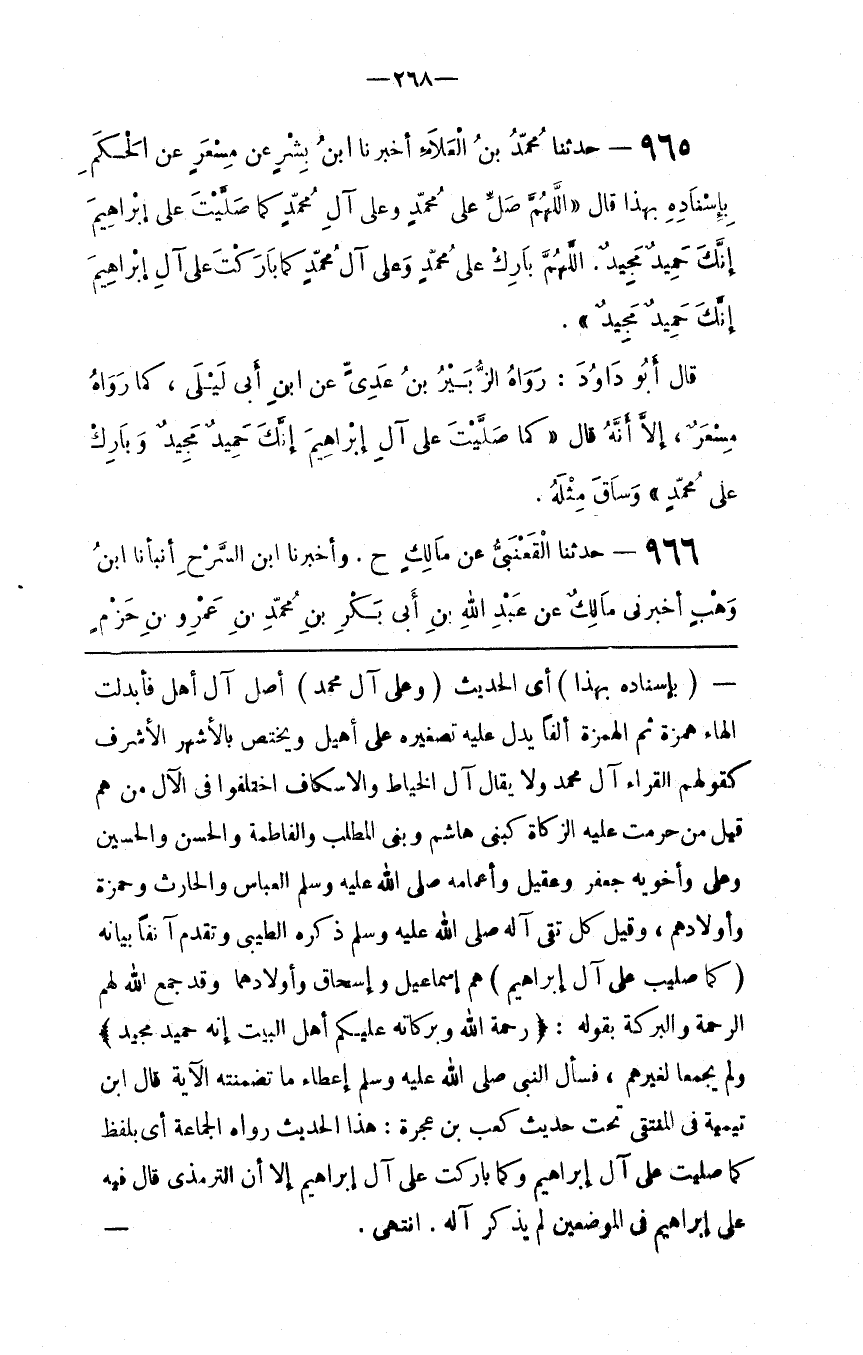 —٢٦٨—
٩٦٥ — حدثنا مُحمّدُ بنُ الْعَلاَءِ أخبرنا ابنُ بِشْرٍ عن مِسْعَرٍ عن الْحَكَمِ
بِإِسْنَادِهِ بهذا قال «اللَّهُمَّ صَلِّ على مُحمّدٍ وعلى آلِ مُحمّدٍ كما صَلَّيْتَ على إبْراهِيمَ
إنَّكَ حَمِيدٌ مَجِيدٌ. اللَّهُمَّ بَارِكْ على مُحمّدٍ وَعلى آل مُحمّدٍ كما بَارَكْتَ على آلِ إبْراهِيمَ
إنَّكَ حَمِيدٌ مَجِيدٌ» .
قال أَبُو دَاوُدَ : رَوَاهُ الزُّبَيْرُ بنُ عَدِىٍّ عن ابنِ أَبى لَيْلَى ، كما رَوَاهُ
مِسْعَرٌ ، إلاَّ أَنَّهُ قال « كما صَلَّيْتَ على آلِ إبْراهِيمَ إنَّكَ حَمِيدٌ مَجِيدٌ وَبَارِكْ
على مُحمّدٍ » وَسَاقَ مِثْلَهُ .
٩٦٦ — حدثنا الْقَعْنَبِىُّ عن مَالِكٍ ح . وأخبرنا ابن السَّرْحِ أنبأنا ابنُ
وَهْبٍ أخبرنى مَالِكٌ عن عَبْدِ اللهِ بنِ أَبى بَكْرِ بنِ مُحمّدِ بنِ عَمْرِو بنِ حَزْمٍ
— ( بإسناده بهذا ) أى الحديث ( وعلى آل محمد ) أصل آل أهل فأبدلت
الهاء همزة ثم الهمزة ألفاً يدل عليه تصغيره على أهيل ويختص بالأشهر الأشرف
كقولهم القراء آل محمد ولا يقال آل الخياط والاسكاف اختلفوا فى الآل من هم
قيل من حرمت عليه الزكاة كبنى هاشم وبنى المطلب والفاطمة والحسن والحسين
وعلى وأخويه جعفر وعقيل وأعمامه صلى الله عليه وسلم العباس والحارث وحمزة
وأولادهم ، وقيل كل تقى آله صلى الله عليه وسلم ذكره الطيبى وتقدم آنفاً بيانه
( كما صليب على آل إبراهيم ) هم إسماعيل وإسحاق وأولادهما وقد جمع الله لهم
الرحمة والبركة بقوله : ﴿ رحمة الله وبركاته عليكم أهل البيت إنه حميد مجيد ﴾
ولم يجمعا لغيرهم ، فسأل النبى صلى الله عليه وسلم إعطاء ما تضمنته الآية قال ابن
تيمية فى المنتقى تحت حديث كعب بن عجرة : هذا الحديث رواه الجماعة أى بلفظ
كما صليت على آل إبراهيم وكما باركت على آل إبراهيم إلا أن الترمذى قال فيه
على إبراهيم فى الموضعين لم يذكر آله . انتهى . —